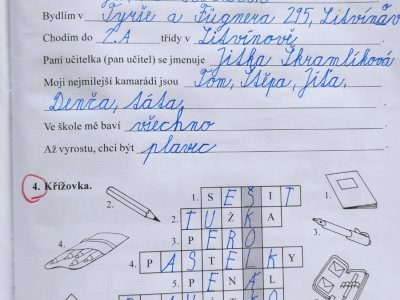 Bydlím v Tyrše a Fügnera 295, Litvínov
Chodím do 2.A třídy v Litvínově
Paní učitelka (pan učitel) se jmenuje Jitka Škramlíková
Moji nejmilejší kamarádi jsou Tom, Štěpa, Jíťa,
Denča, táta,
Ve škole mě baví všechno
Až vyrostu, chci být plavec
4. Křížovka.
1. SEŠIT 1.
2. 2. TUŽKA
3. PERO 3.
4. 4. PASTELKY
5. PENÁL